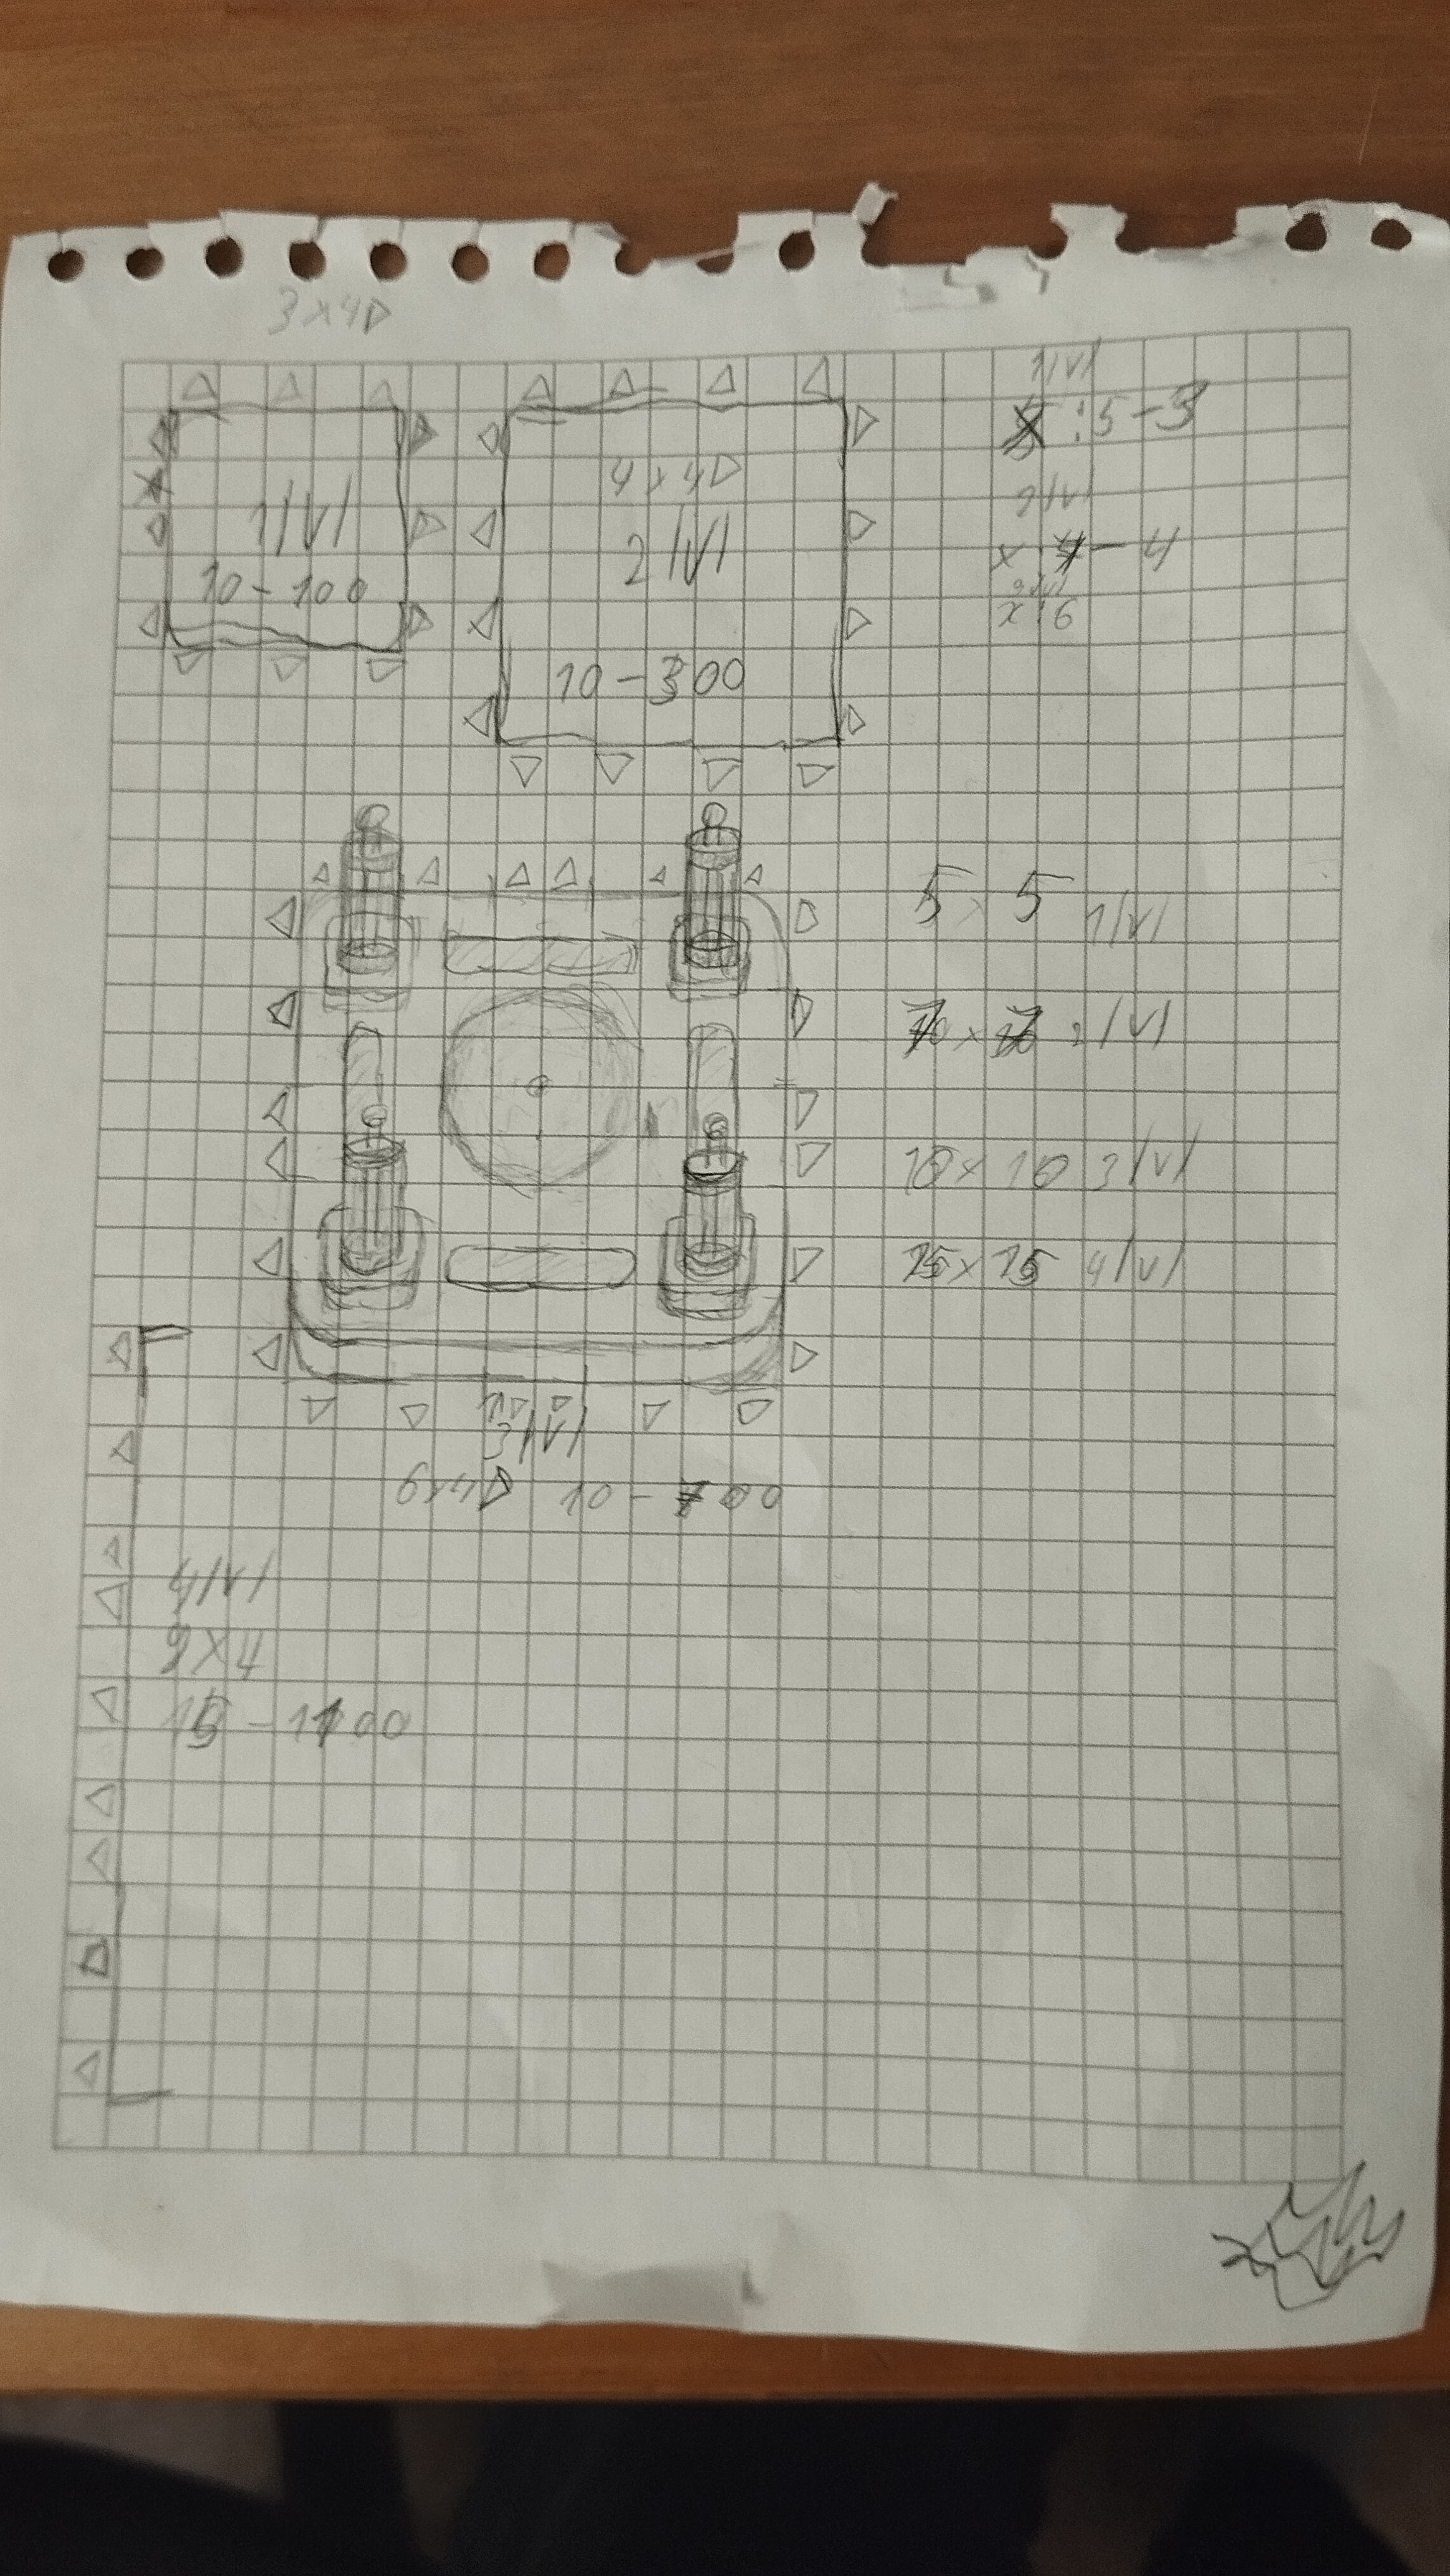 3x4▷
1lvl
10-100
4x4▷
2lvl
10-300
1lvl
:5-3
2lvl
-4
x:6
5x5 1lvl
7x7 2lvl
10x10 3lvl
15x15 4lvl
3lvl
6x4▷ 10-700
4lvl
9x4
15-1100